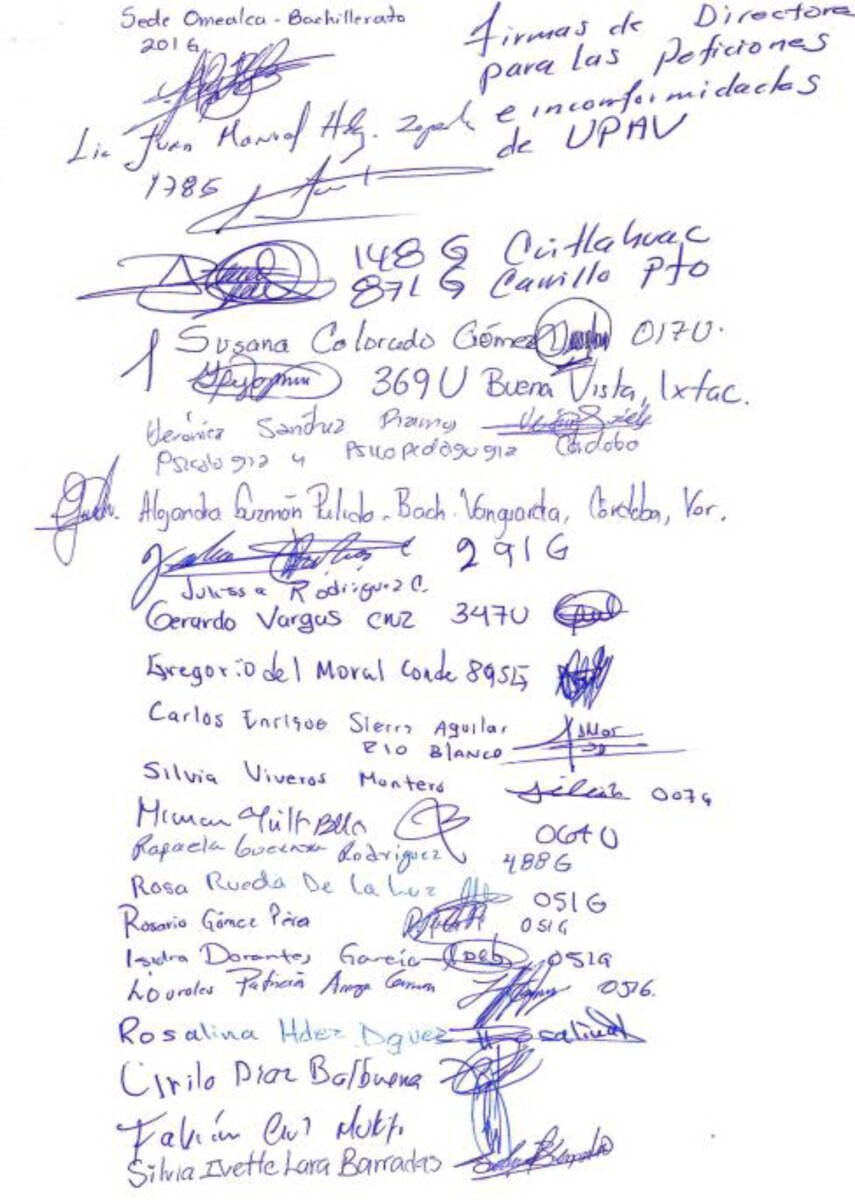 Sede Omealca - Bachillerato
201G
Firmas de Directores
para las Peticiones
e inconformidades
de UPAV
Lic Juan Manuel Hdg. Zepeda
178G
148 G Cuitlahuac
871 G Carrillo Pto
Susana Colorado Gómez 017U.
369U Buena Vista, Ixtac.
Verónica Sánchez Ramos
Psicología y Psicopedagogía Córdoba
Alejandra Guzmán Pulido - Bach. Vanguardia, Córdoba, Ver.
291G
Julissa Rodríguez C.
Gerardo Vargas cruz 347U
Gregorio del Moral Conde 895G
Carlos Enrique Sierra Aguilar
RIO BLANCO
Silvia Viveros Montero 007G
064U
Rafaela Guerrero Rodriguez 488G
Rosa Rueda De La Luz 051G
Rosario Gómez Pérez 051G
Isidra Dorantes García 051G
Lourdes Patricia 051G.
Rosalina Hdez Dguez
Cirilo Diaz Balbuena
Fabián Cruz
Silvia Ivette Lara Barradas